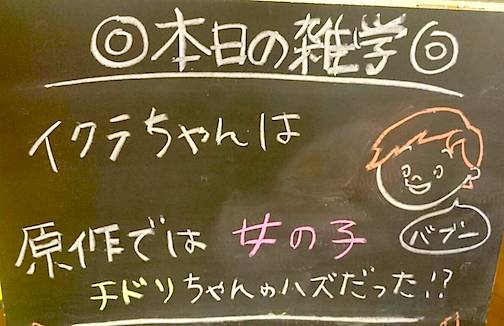 ◎本日の雑学◎
イクラちゃんは
バブー
原作では女の子
チドリちゃんのハズだった!?